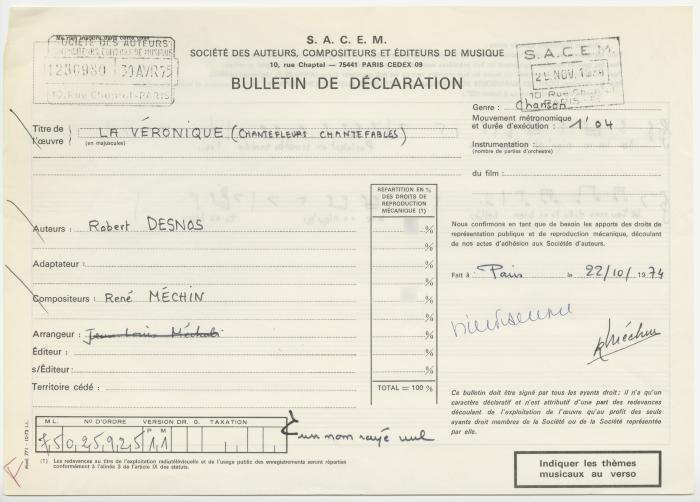 S. A. C. E. M.
SOCIÉTÉ DES AUTEURS, COMPOSITEURS ET ÉDITEURS DE MUSIQUE
10, rue Chaptal — 75441 PARIS CEDEX 09
BULLETIN DE DÉCLARATION
SOCIÉTÉ DES AUTEURS
1230980 30 AVR 75
10, Rue Chaptal - PARIS
S.A.C.E.M.
29 NOV. 1974
10 Rue Chaptal
PARIS
Genre : Chanson
Mouvement métronomique
et durée d'exécution : 1'04
Instrumentation :
(nombre de parties d'orchestre)
du film :
Titre de l'œuvre LA VÉRONIQUE (CHANTEFLEURS CHANTEFABLES)
(en majuscules)
RÉPARTITION EN %
DES DROITS DE
REPRODUCTION
MÉCANIQUE (1)
Auteurs : Robert DESNOS %
Adaptateur : %
Compositeurs : René MÉCHIN %
Arrangeur : %
Éditeur : %
s/Éditeur : %
Territoire cédé :
TOTAL = 100 %
Nous confirmons en tant que de besoin les apports des droits de
représentation publique et de reproduction mécanique, découlant
de nos actes d'adhésion aux Sociétés d'auteurs.
Fait à Paris le 22/10/ 1974
RMéchin
Ce bulletin doit être signé par tous les ayants droit ; il n'a qu'un
caractère déclaratif et n'est attributif d'une part des redevances
découlant de l'exploitation de l'œuvre qu'au profit des seuls
ayants droit membres de la Société ou de la Société représentée
par elle.
M L. N° D'ORDRE VERSION DR. G. TAXATION
P M
un nom rayé nul
(1) Les redevances au titre de l'exploitation radiotélévisuelle et de l'usage public des enregistrements seront réparties
conformément à l'alinéa 3 de l'article IX des statuts.
Indiquer les thèmes
musicaux au verso